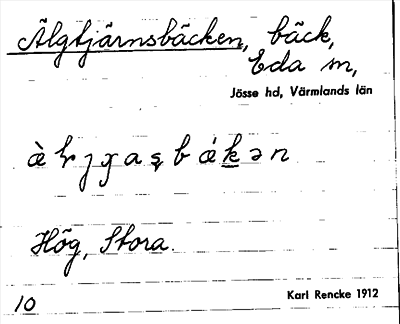 Älgtjärnsbäcken, bäck,
Eda sn,
Jösse hd, Värmlands län
Hög, Stora.
10
Karl Rencke 1912